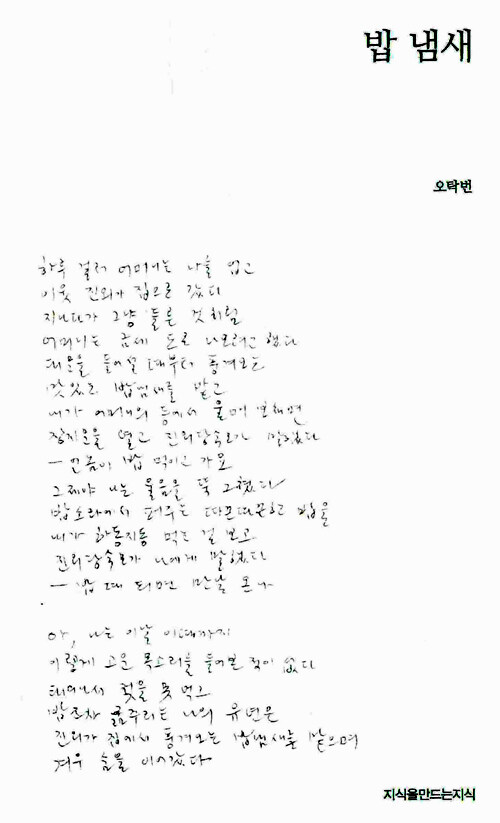 밥 냄새
오탁번
하루 걸러 어머니는 나를 업고
이웃 진외가 집으로 갔다
지나다가 그냥 들른 것처럼
어머니는 금세 도로 나오려고 했다
대문을 들어설 때부터 풍겨오는
맛있는 밥냄새를 맡고
내가 어머니의 등에서 울며 보채면
장지문을 열고 진외당숙모가 말했다
— 언놈이 밥 먹이고 가요
그제야 나는 울음을 뚝 그쳤다
밥소라에서 퍼주는 따끈따끈한 밥을
내가 하동지동 먹는 걸 보고
진외당숙모가 나에게 말했다
— 밥 때 되면 만날 온나
아, 나는 이날 이때까지
이렇게 고운 목소리를 들어본 적이 없다
태어나서 젖을 못 먹고
밥조차 굶주리는 나의 유년은
진외가 집에서 풍겨오는 밥냄새를 맡으며
겨우 숨을 이어갔다
지식을만드는지식